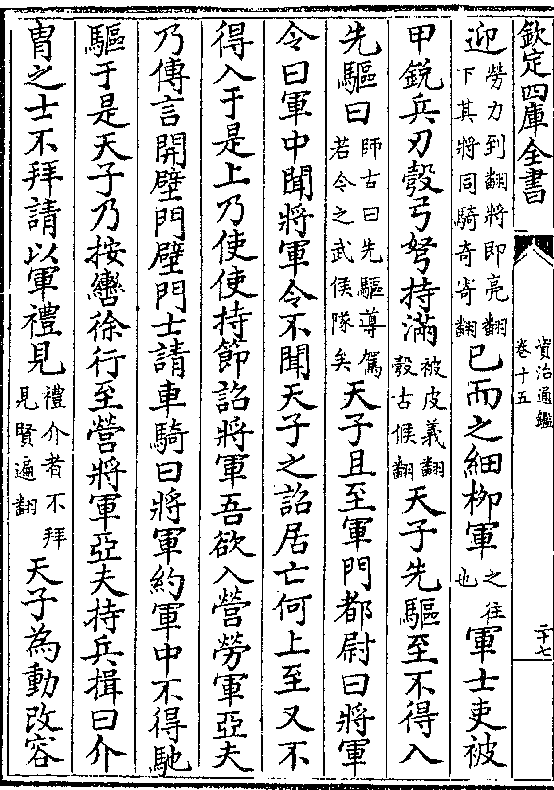 欽定四庫全書
資治通鑑
卷十五
二十七
迎勞力到翻將即亮翻下其將同騎奇寄翻已而之細柳軍之往也軍士吏被
甲銳兵刃彀弓弩持滿被皮義翻彀古候翻天子先驅至不得入
先驅曰師古曰先驅導駕若今之武候隊矣天子且至軍門都尉曰將軍
令曰軍中聞將軍令不聞天子之詔居亡何上至又不
得入于是上乃使使持節詔將軍吾欲入營勞軍亞夫
乃傳言開壁門壁門士請車騎曰將軍約軍中不得馳
驅于是天子乃按轡徐行至營將軍亞夫持兵揖曰介
胄之士不拜請以軍禮見禮介者不拜見賢遍翻天子為動改容